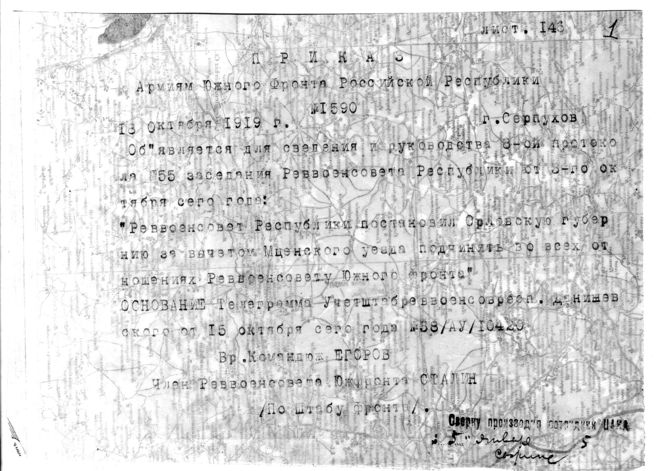 лист. 143 1
П Р И К А З
Армиям Южного Фронта Российской Республики
№1590
13 Октября 1919 г. г.Серпухов
Об"является для сведения и руководства 8-ой протоко
ла №55 заседания Реввоенсовета Республики от 3-го ок
тября сего года:
"Реввоенсовет Республики постановил Орловскую губер
нию за вычетом Мценского уезда подчинить во всех от
ношениях Реввоенсовету Южного фронта"
ОСНОВАНИЕ Телеграмма Данишев
ского от 15 октября сего года №58/АУ/10429
Вр.Командюж ЕГОРОВ
Член Реввоенсовета Южфронта СТАЛИН
/По штабу фронта/.
Сверку производил
5 " января 5